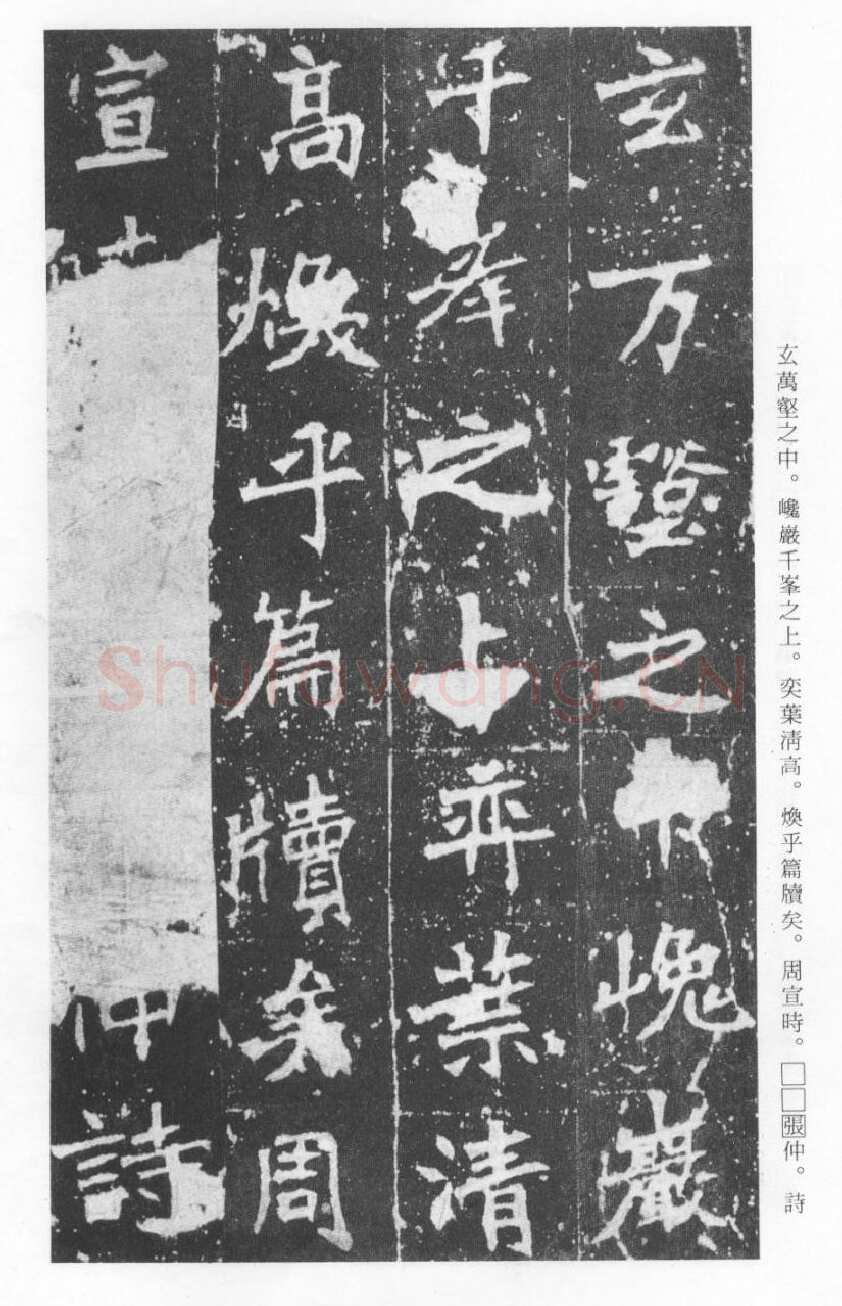 玄萬壑之中。巉巖千峯之上。奕葉清高。煥乎篇牘矣。周宣時。□□張仲。詩
玄万壑之中巉巖
千峯之上弈葉清
高煥乎篇牘矣周
宣時仲詩
Shufawang.CN